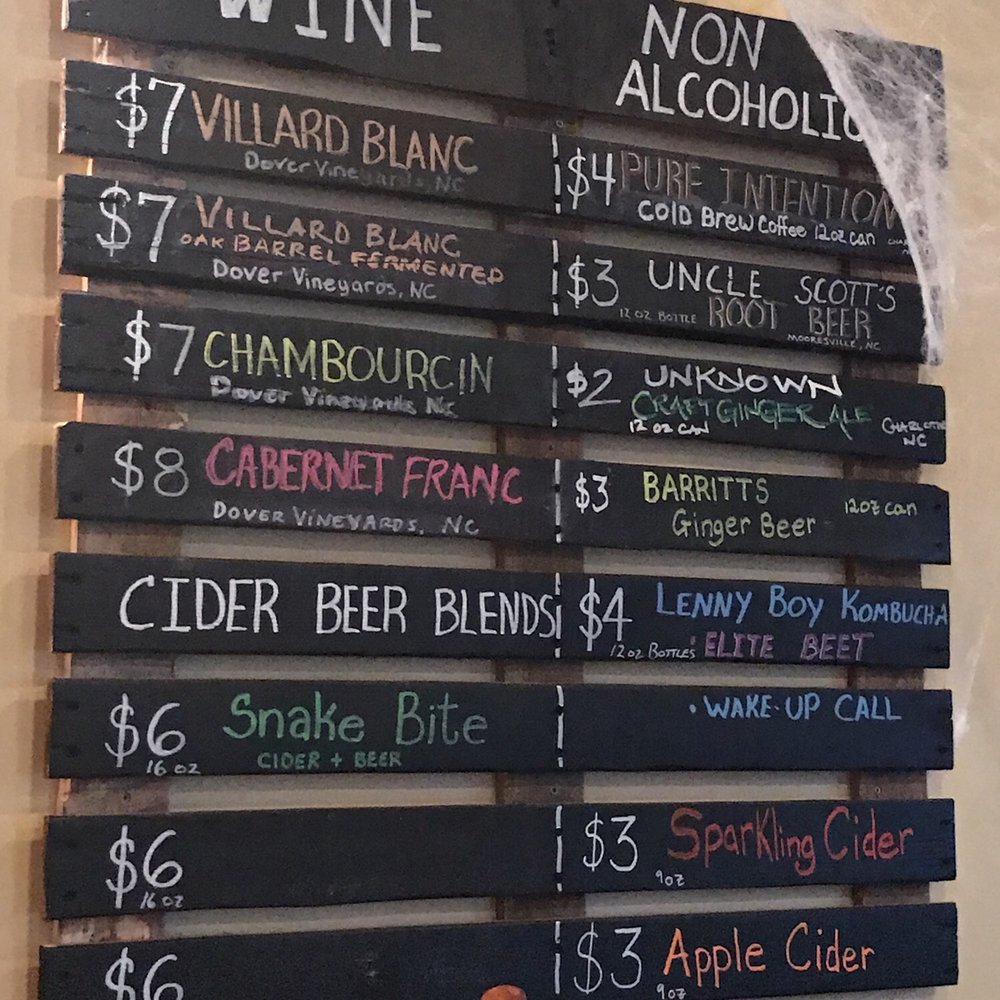 WINE
$7 VILLARD BLANC
Dover Vineyards, NC
$7 VILLARD BLANC
OAK BARREL FERMENTED
Dover Vineyards, NC
$7 CHAMBOURCIN
Dover Vineyards NC
$8 CABERNET FRANC
DOVER VINEYARDS, NC
CIDER BEER BLENDS
$6 Snake Bite
16 OZ CIDER + BEER
$6
16 OZ
$6
NON
ALCOHOLIC
$4 PURE INTENTION
COLD Brew Coffee 12oz can
$3 UNCLE SCOTT'S
12 OZ BOTTLE ROOT BEER
MOORESVILLE, NC
$2 UNKNOWN
CRAFT GINGER ALE
12 OZ CAN CHARLOTTE
NC
$3 BARRITTS 12oz can
Ginger Beer
$4 LENNY BOY KOMBUCHA
12oz BOTTLES • ELITE BEET
• WAKE-UP CALL
$3 Sparkling Cider
9oz
$3 Apple Cider
9oz